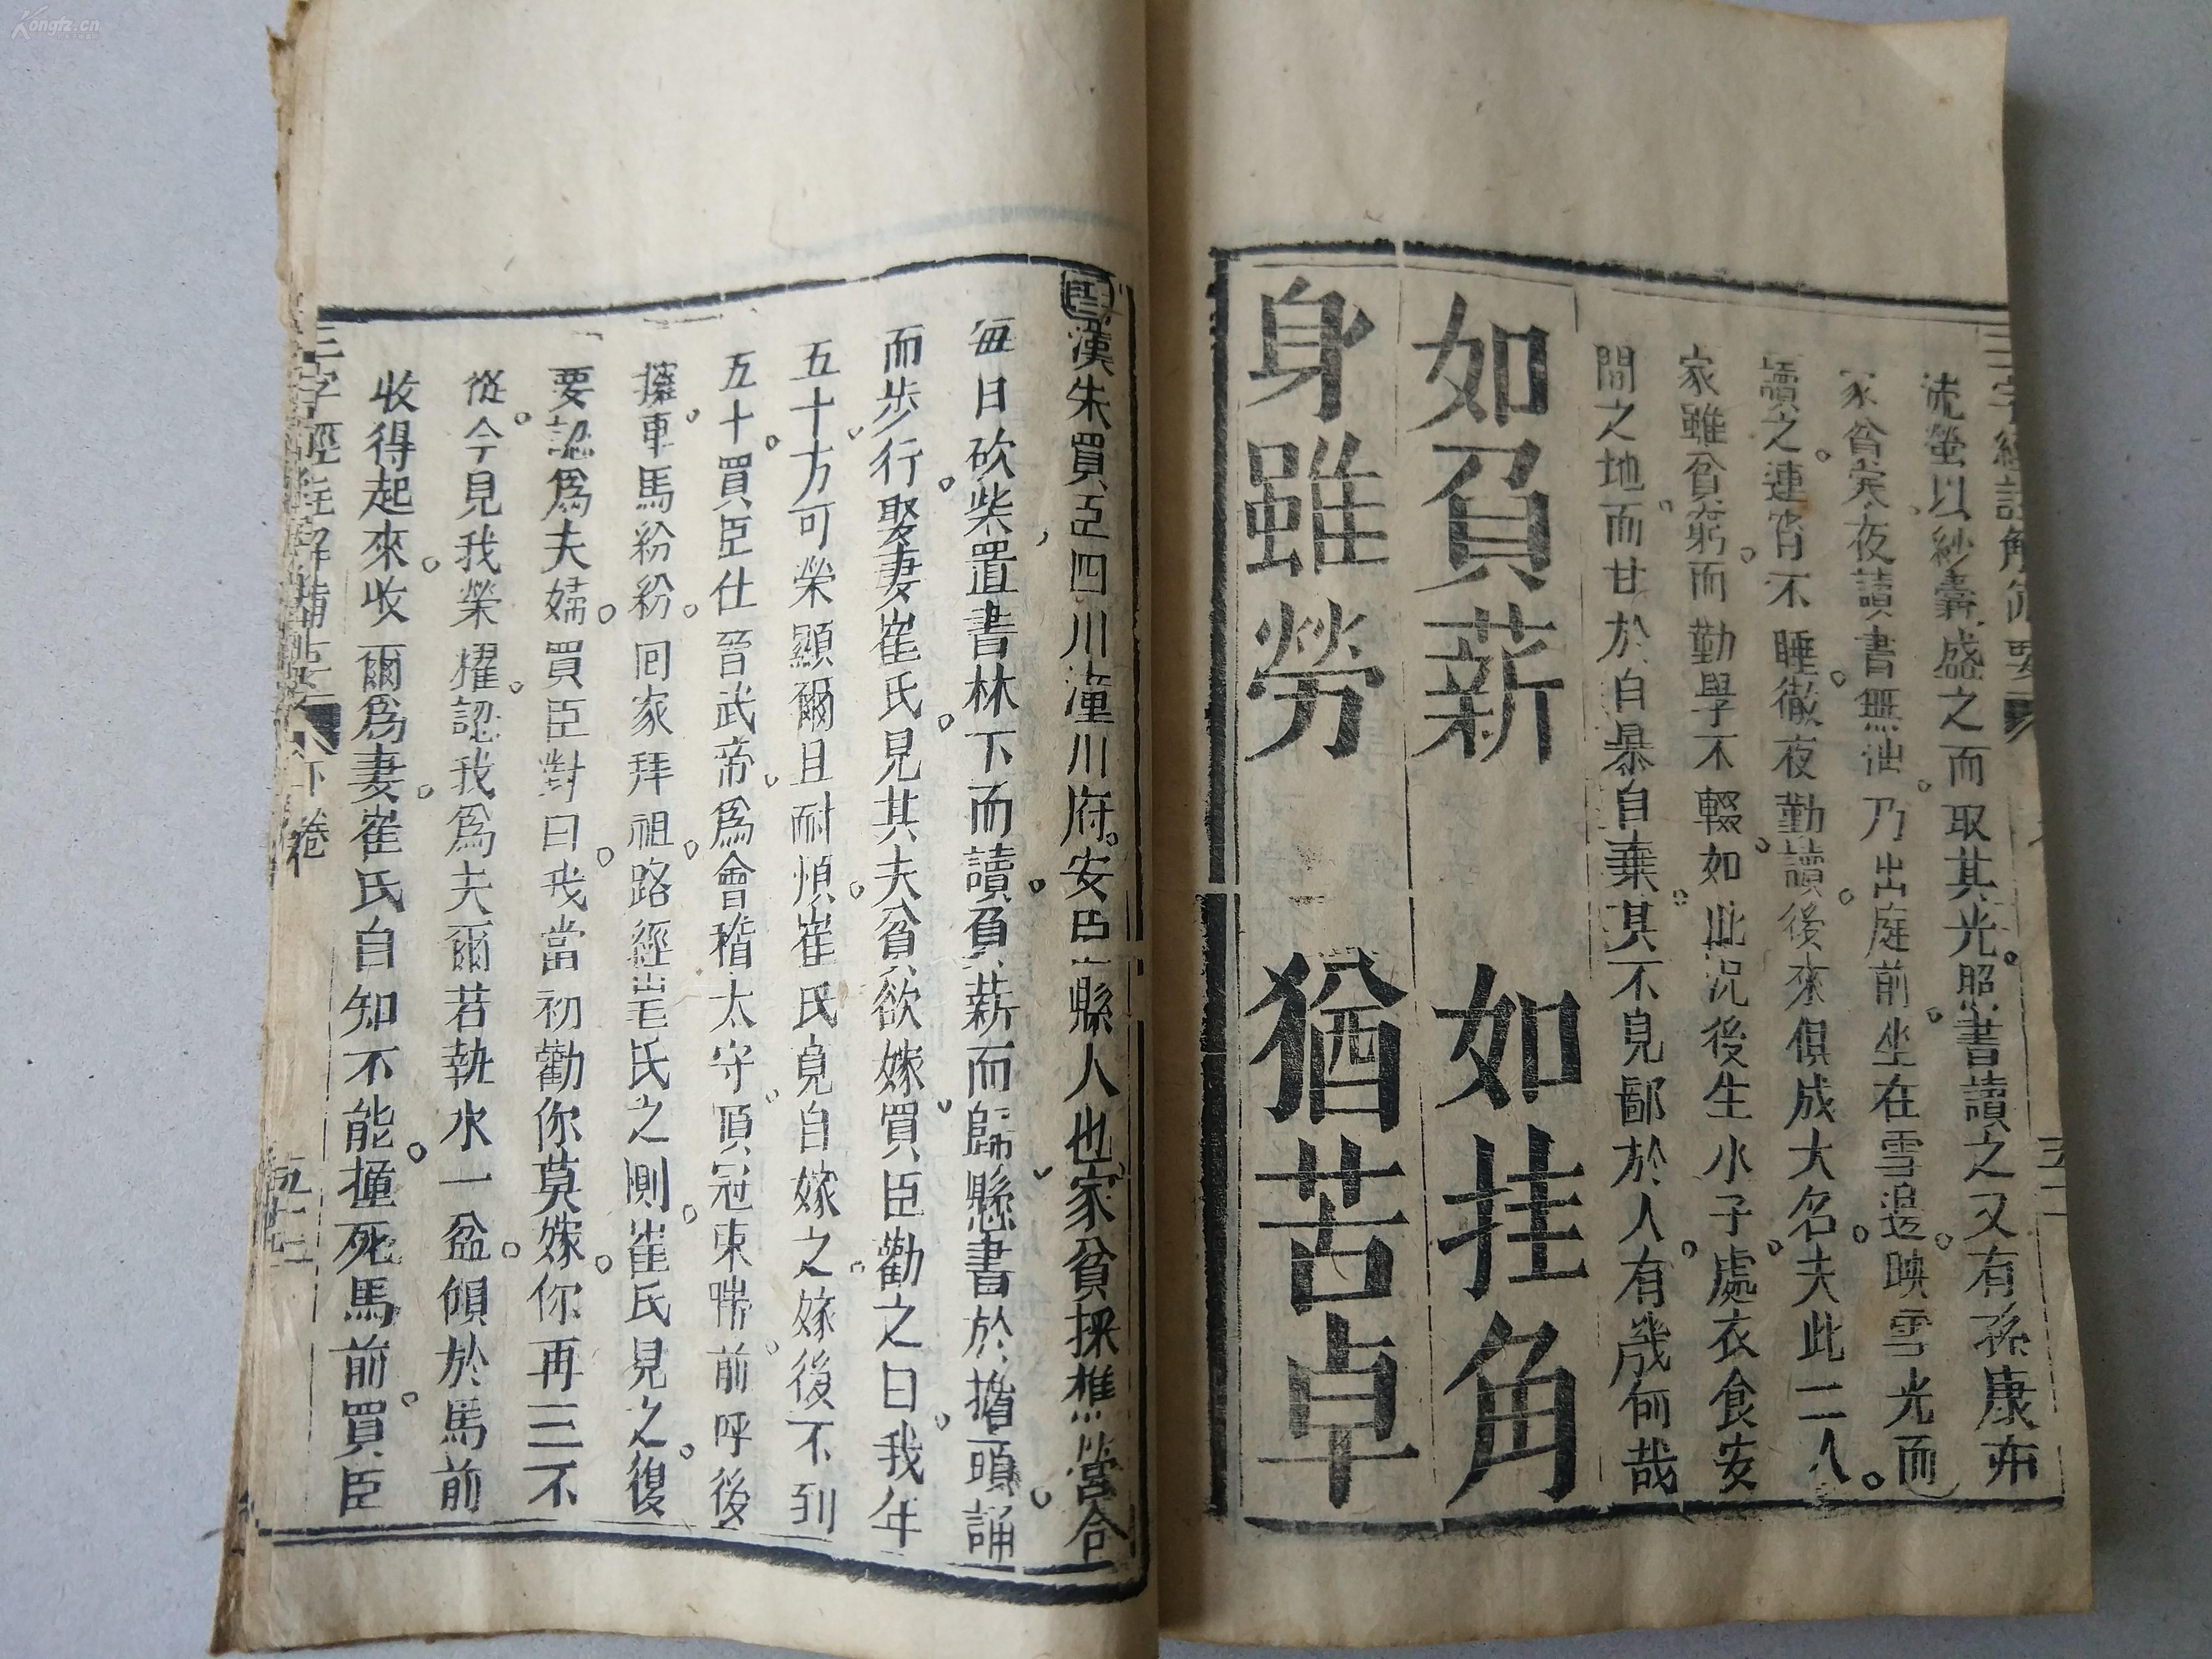 流螢以紗囊盛之而取其光照書讀之又有孫康亦
家貧柴夜讀書無油乃出庭前坐在雪邊映雪光而
讀之連宵不睡徹夜勤讀後來俱成大名夫此二人
家雖貧窮而勤學不輟如此況後生小子處衣食安
閒之地而甘於自暴自棄其不見鄙於人有幾何哉
如負薪 如挂角
身雖勞 猶苦卓
漢朱買臣四川潼川府安邑縣人也家貧採樵營合
每日砍柴置書林下而讀負薪而歸懸書於擔頭誦
而步行娶妻崔氏見其夫貧欲嫁買臣勸之曰我年
五十方可榮顯爾且耐煩崔氏竟自嫁之嫁後不到
五十買臣仕晉武帝為會稽太守頂冠束帶前呼後
擁車馬紛紛囘家拜祖路經崔氏之側崔氏見之復
要認為夫婦買臣對曰我當初勸你莫嫁你再三不
從今見我榮耀認我為夫爾若執水一盆傾於馬前
收得起來收爾為妻崔氏自知不能撞死馬前買臣
三字經註解備要
下卷
五十二
Kongfz.cn